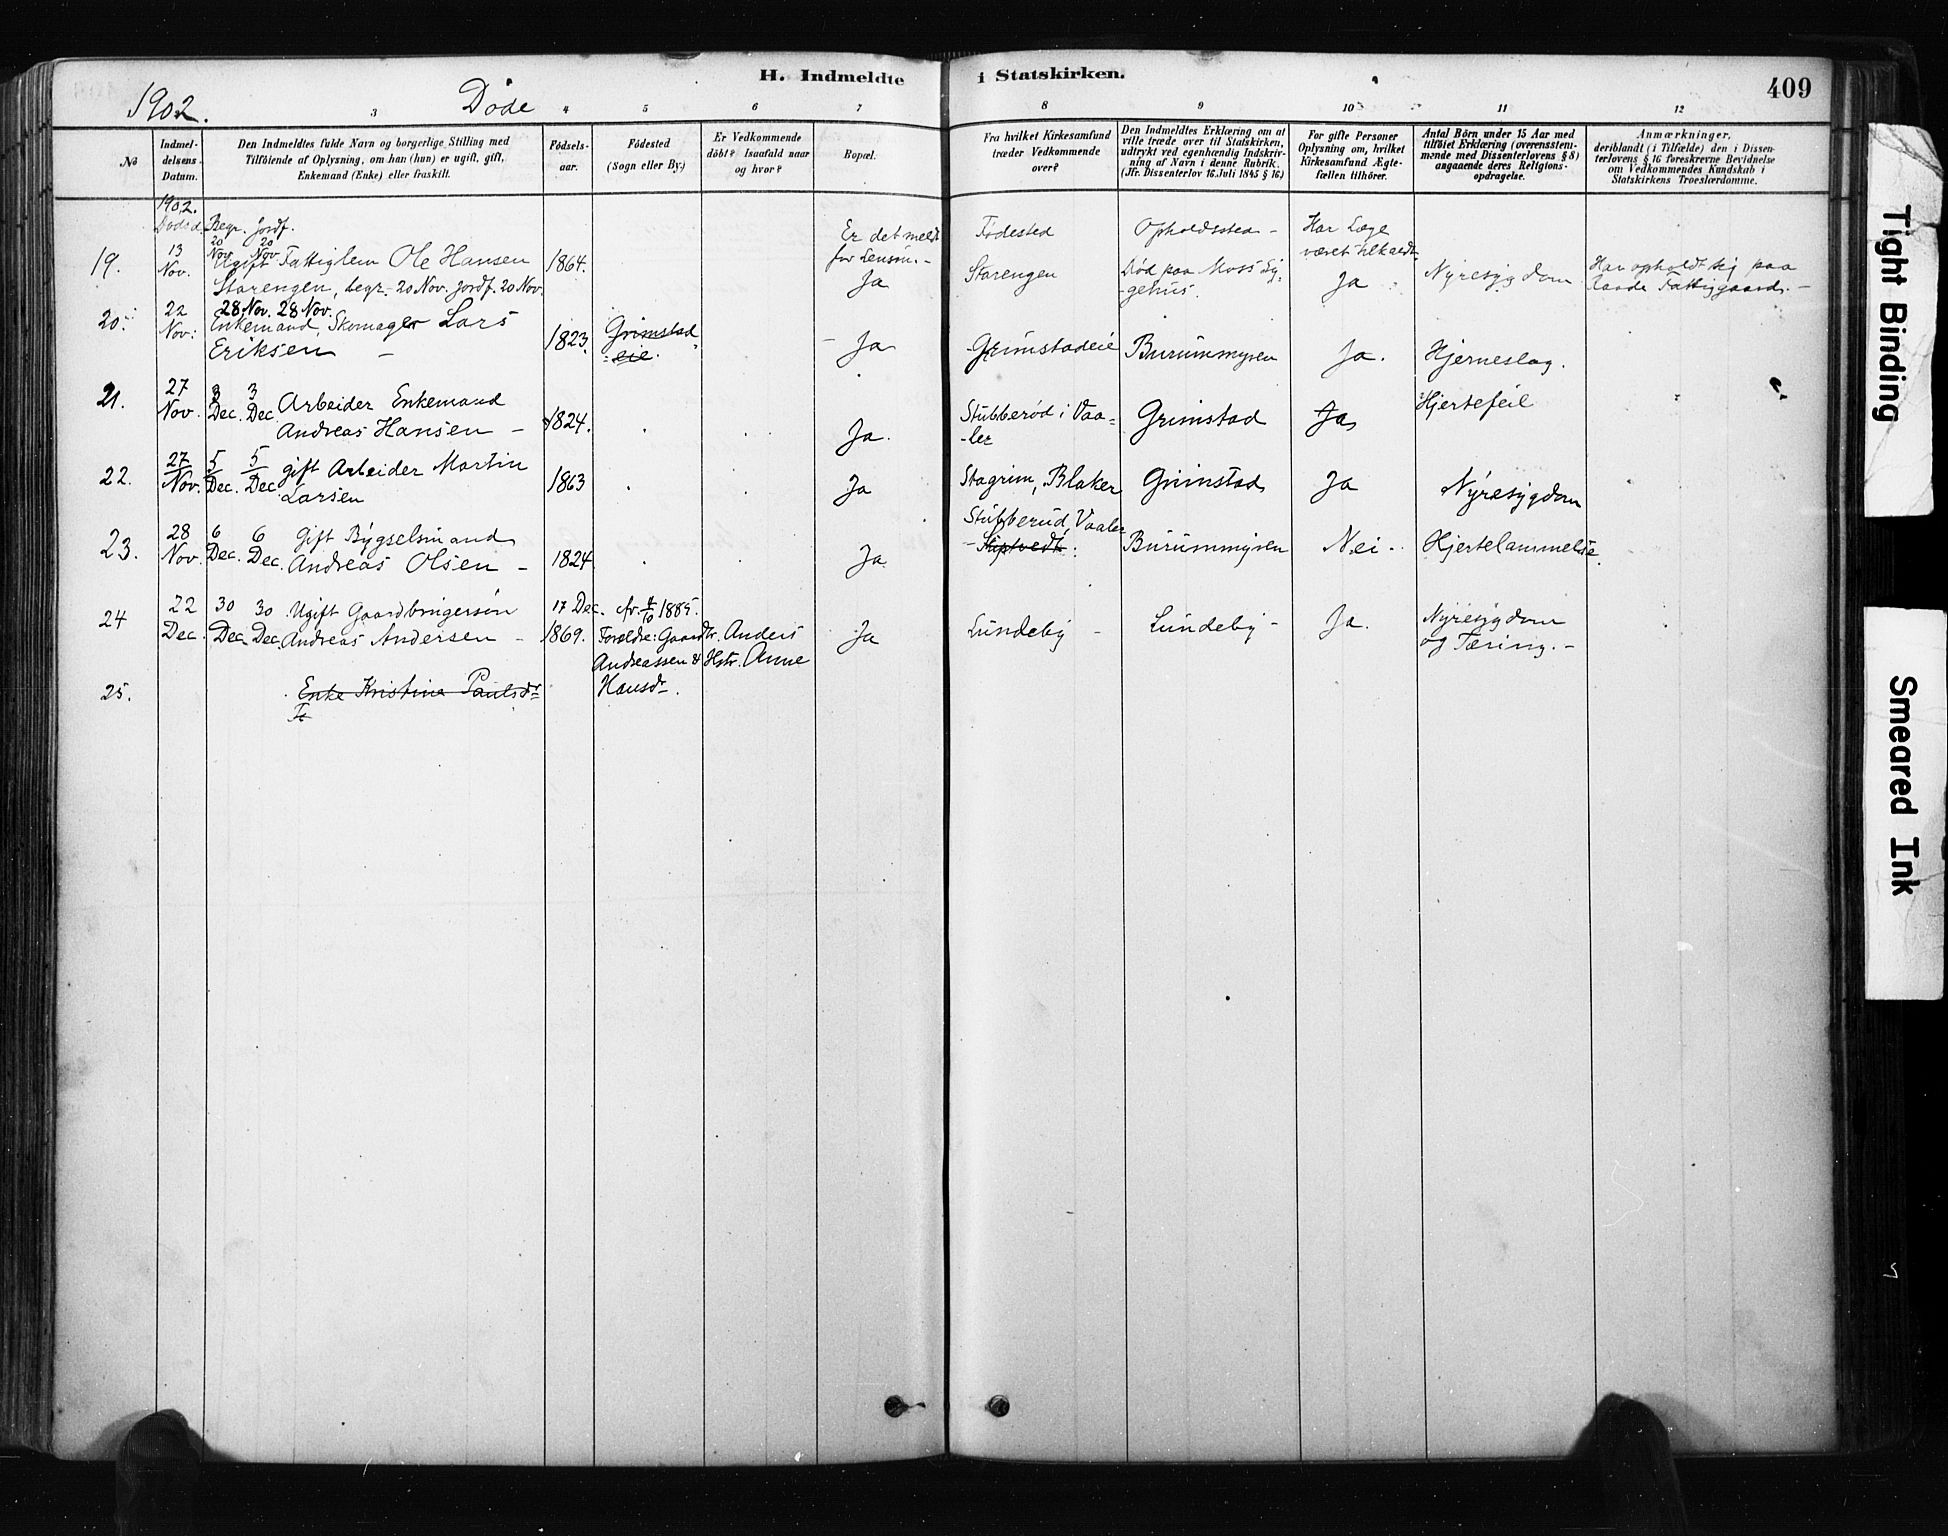 H. Indmeldte i Statskirken.
409
1902. Døde
3 4 5 6 7 8 9 10 11 12
No
Indmel-
delsens
Datum.
Den Indmeldtes fulde Navn og borgerlige Stilling med
Tilföiende af Oplysning, om han (hun) er ugift, gift,
Enkemand (Enke) eller fraskilt.
Födsels-
aar.
Födested
(Sogn eller By.)
Er Vedkommende
döbt? Isaafald naar
og hvor?
Bopæl.
Fra hvilket Kirkesamfund
træder Vedkommende
over?
Den Indmeldtes Erklæring om at
ville træde over til Statskirken,
udtrykt ved egenhændig Indskriv-
ning af Navn i denne Rubrik.
(Jfr. Dissenterlov 16. Juli 1845 § 16.)
For gifte Personer
Oplysning om, hvilket
Kirkesamfund Ægte-
fællen tilhörer.
Antal Börn under 15 Aar med
tilföiet Erklæring (overensstem-
mende med Dissenterlovens § 8)
angaaende deres Religions-
opdragelse.
Anmærkninger,
deriblandt (i Tilfælde) den i Dissen-
terlovens § 16 foreskrevne Bevidnelse
om Vedkommendes Kundskab i
Statskirkens Troeslærdomme.
1902.
Dødsd. Begr. Jordf.
Er det meldt
for Lensm. -
Fødested
Opholdssted -
Har Læge
været tilkaldt
19. 13 Nov. 20 Nov. 20 Nov. Ugift Fattiglem Ole Hansen
Starengen, begr. 20 Nov. Jordf. 20 Nov.
1864.
Ja
Starengen
Død paa Moss Sy-
gehus.
Ja
Nyresygdom
Har opholdt sig paa
Fattiggaard. -
20. 22 Nov. 28 Nov. 28 Nov.
Enkemand, Skomager Lars
Eriksen -
1823.
Grimstad
eie.
- Ja
Grimstadeie
Burummyren
Ja.
Hjerneslag.
21. 27 Nov. 3 Dec. 3 Dec. Arbeider Enkemand
Andreas Hansen -
1824.
Ja.
Stubberød i Vaa-
ler
Grimstad
Ja
Hjertefeil
22. 27 Nov. 5 Dec. 5 Dec. gift Arbeider Martin
Larsen
1863
Ja
Stagrim, Blaker
Grimstad
Ja
Nyresygdom
23. 28 Nov. 6 Dec. 6 Dec. Gift Bygselsmand
Andreas Olsen -
1824
Ja
Stubberud, Vaaler
Skiptvedt.
Burummyren
Nei.
Hjertelammelse.
24 22 Dec. 30 Dec. 30 Dec. Ugift Gaardbrugersøn
Andreas Andersen -
17 Dec.
1869.
1885.
Forældre: Gaardbr. Anders
Andreassen & Hstr. Anne
Hansdr.
Ja
Lundeby -
Lundeby -
Ja.
Nyresygdom
og Tæring. -
25. Enke Kristine Paulsdr
Tight Binding
Smeared Ink